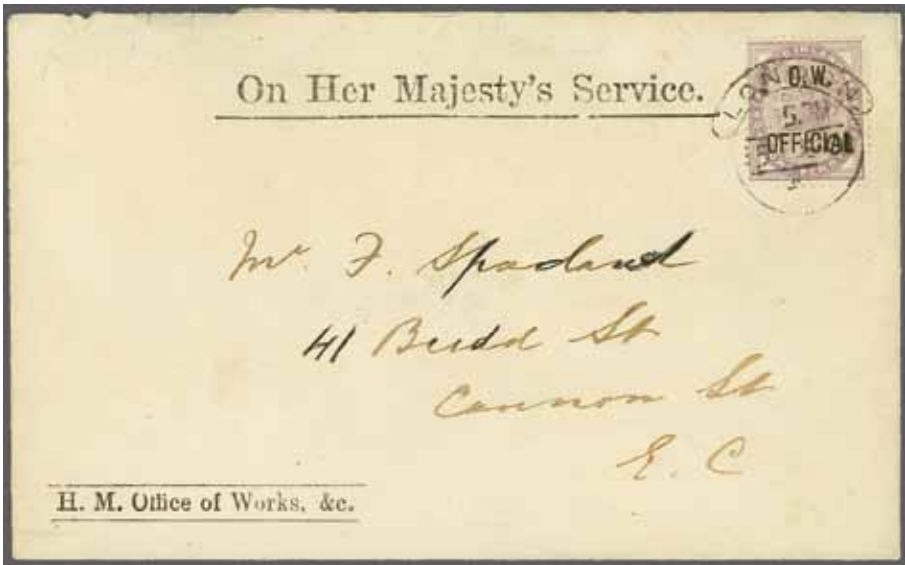 On Her Majesty's Service.
LONDON
O.W.
5. PM
OFFICIAL
Mr. F. Spadard
41 Budd St
Cannon St
E. C
H. M. Office of Works, &c.